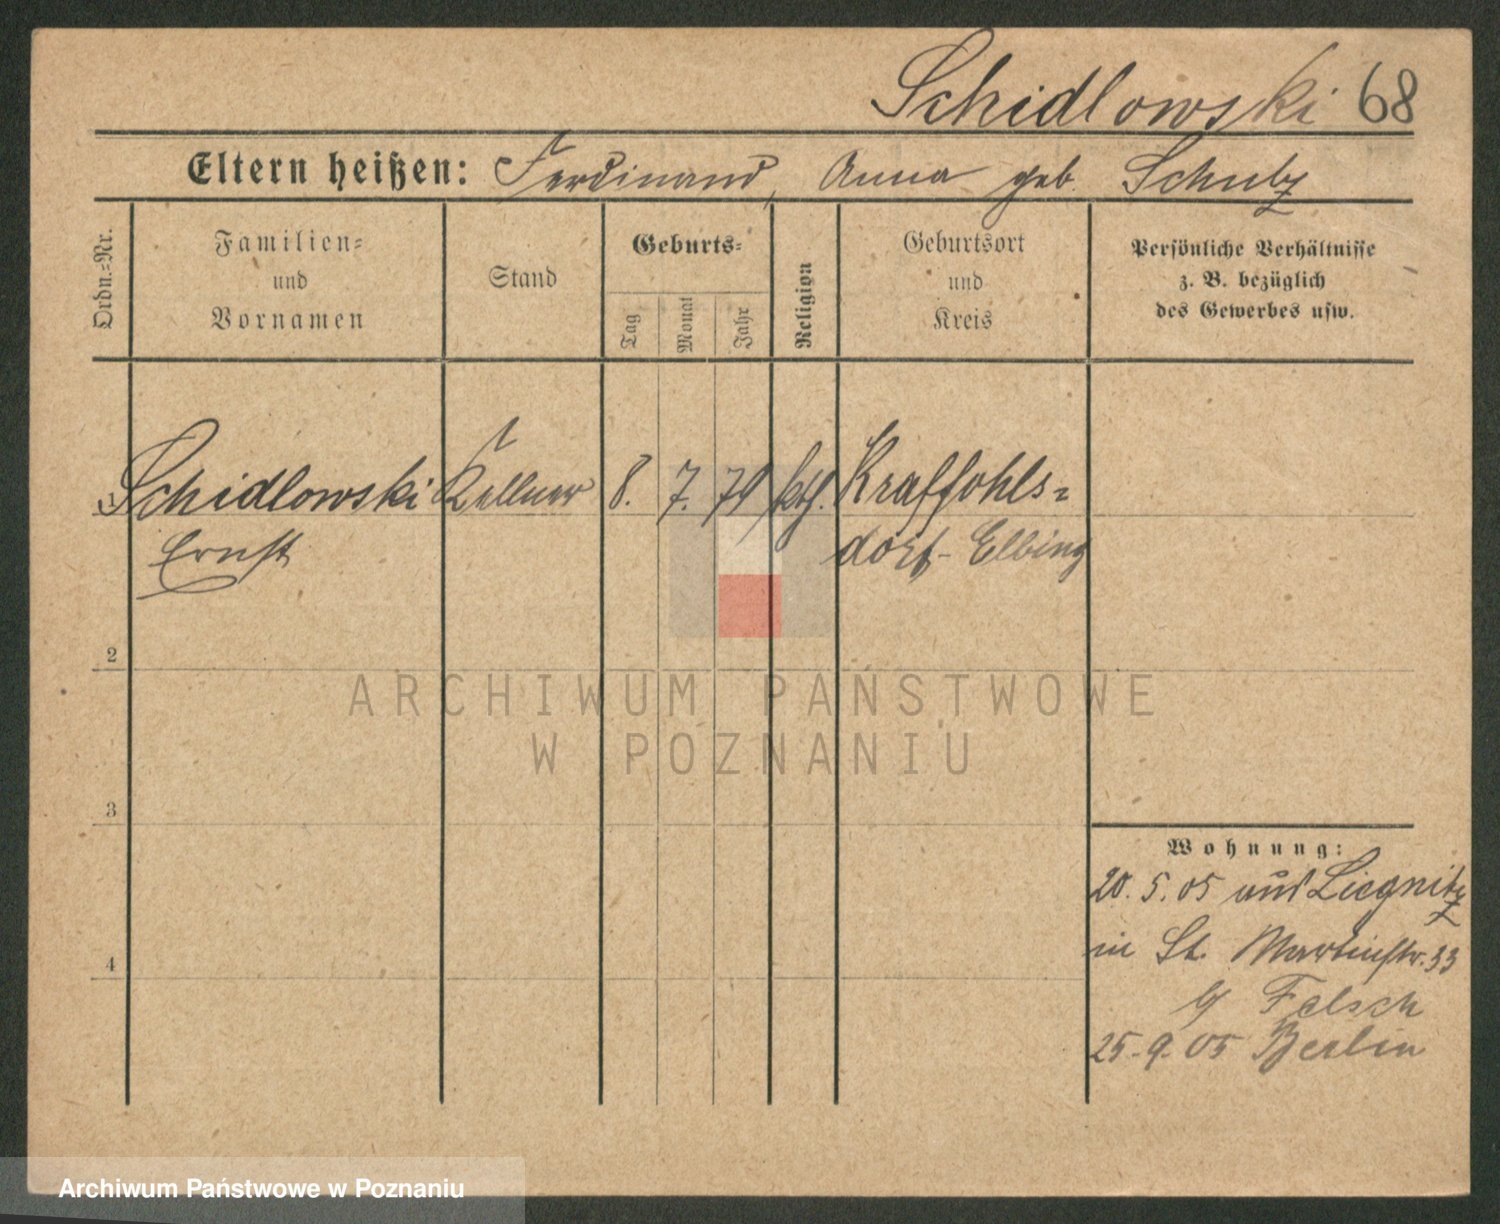 Schidlowski 68
Eltern heißen: Ferdinand, Anna geb. Schulz
Ordn.-Nr.
Familien-
und
Vornamen
Stand
Geburts-
Tag
Monat
Jahr
Religion
Geburtsort
und
Kreis
Persönliche Verhältnisse
z. B. bezüglich
des Gewerbes usw.
1 Schidlowski Kellner 8. 7. 79 kth. Kraffohls-
Ernst dorf- Elbing
2
3
4
Wohnung:
20. 5. 05 aus Liegnitz
in St. Martinstr. 33
b/ Felsch
25. 9. 05 Berlin
ARCHIWUM PAŃSTWOWE
W POZNANIU
Archiwum Państwowe w Poznaniu